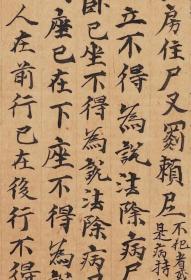 房住尸叉罽賴尼
不犯者或
是病持
立不得為說法除病尸
卧已坐不得為說法除病
座已在下座不得為
人在前行已在後行不得